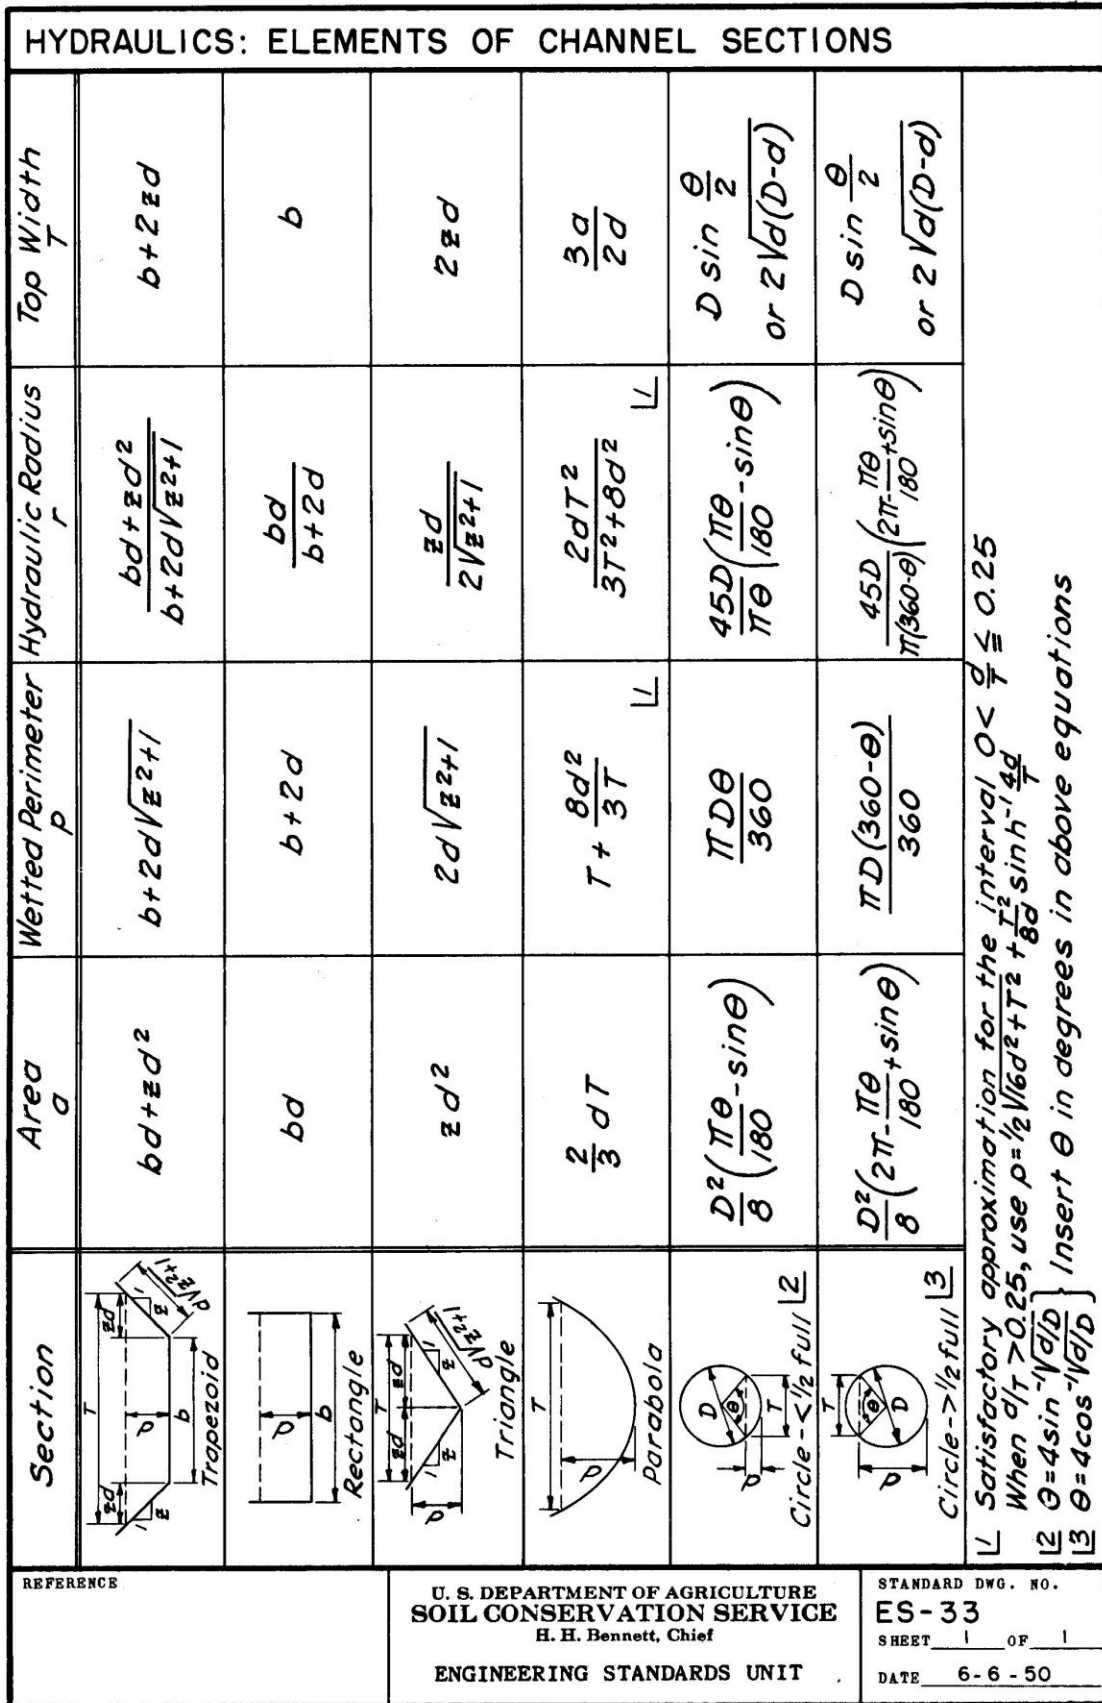 HYDRAULICS: ELEMENTS OF CHANNEL SECTIONS
Section
Area
a
Wetted Perimeter
p
Hydraulic Radius
r
Top Width
T
T
zd
zd
1
z
d
b
1
z
d√z²+1
Trapezoid
bd+zd²
b+2d√z²+1
bd+zd² / b+2d√z²+1
b+2zd
d
b
Rectangle
bd
b+2d
bd / b+2d
b
T
zd
zd
1
z
d
1
z
d√z²+1
Triangle
zd²
2d√z²+1
zd / 2√z²+1
2zd
T
d
Parabola
2/3 dT
T + 8d²/3T |1
2dT² / 3T²+8d² |1
3a / 2d
D
θ
T
d
Circle-<1/2 full |2
D²/8 (πθ/180 - sinθ)
πDθ / 360
45D/πθ (πθ/180 - sinθ)
D sin θ/2
or 2√d(D-d)
T
θ
D
d
Circle->1/2 full |3
D²/8 (2π - πθ/180 + sinθ)
πD(360-θ) / 360
45D/π(360-θ) (2π - πθ/180 + sinθ)
D sin θ/2
or 2√d(D-d)
|1 Satisfactory approximation for the interval 0< d/T ≦ 0.25
When d/T >0.25, use p=1/2√16d²+T² + T²/8d sinh⁻¹ 4d/T
|2 θ=4sin⁻¹√d/D
|3 θ=4cos⁻¹√d/D } Insert θ in degrees in above equations
REFERENCE
U. S. DEPARTMENT OF AGRICULTURE
SOIL CONSERVATION SERVICE
H. H. Bennett, Chief
ENGINEERING STANDARDS UNIT
STANDARD DWG. NO.
ES-33
SHEET 1 OF 1
DATE 6-6-50